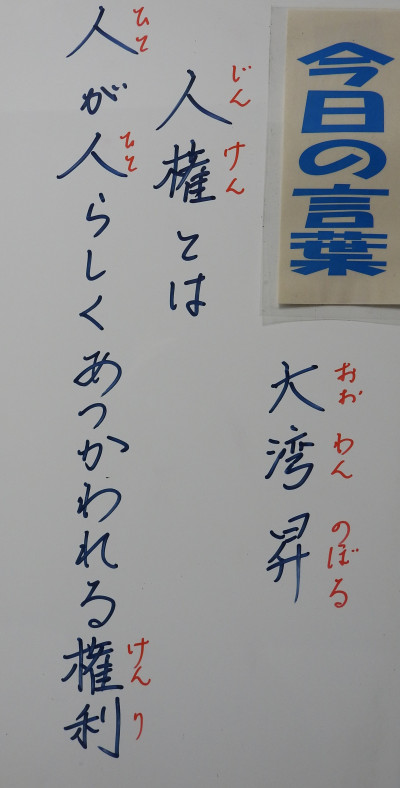 今日の言葉
おお わん のぼる
大湾昇
じん けん
人権とは
ひと ひと けん り
人が人らしくあつかわれる権利